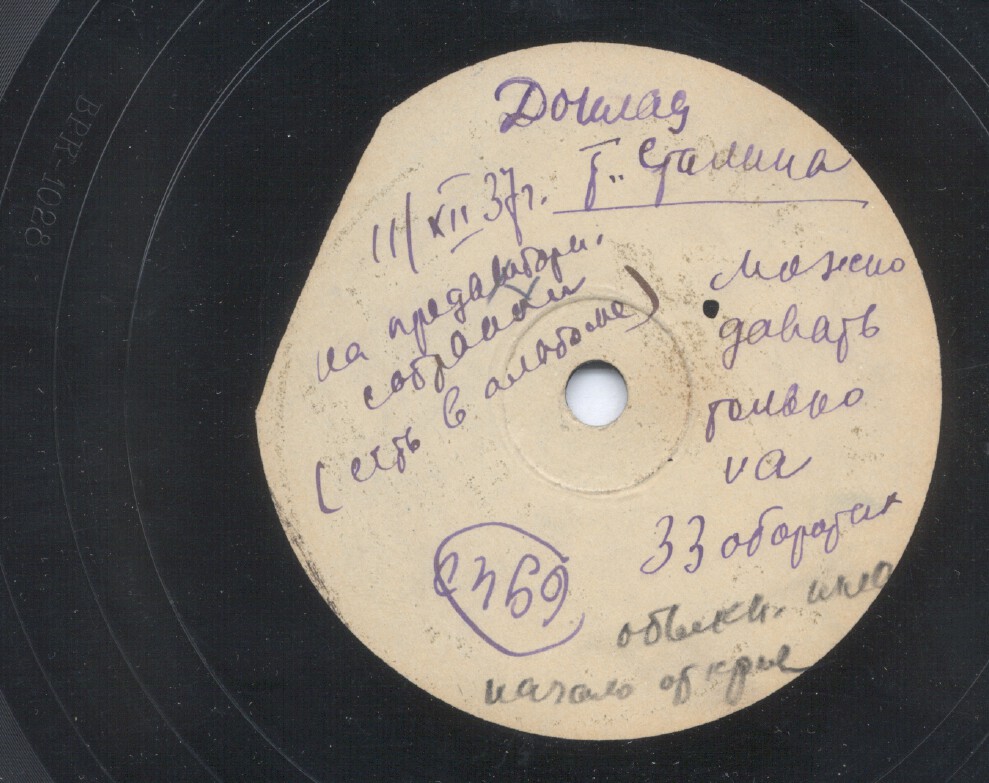 Доклад
т. Сталина
11/XII 37г.
на предвыборн.
собрании
(есть в альбоме)
можно
давать
только
на
33 оборотах
обыкн. игла
начало от края
ВРК-1028